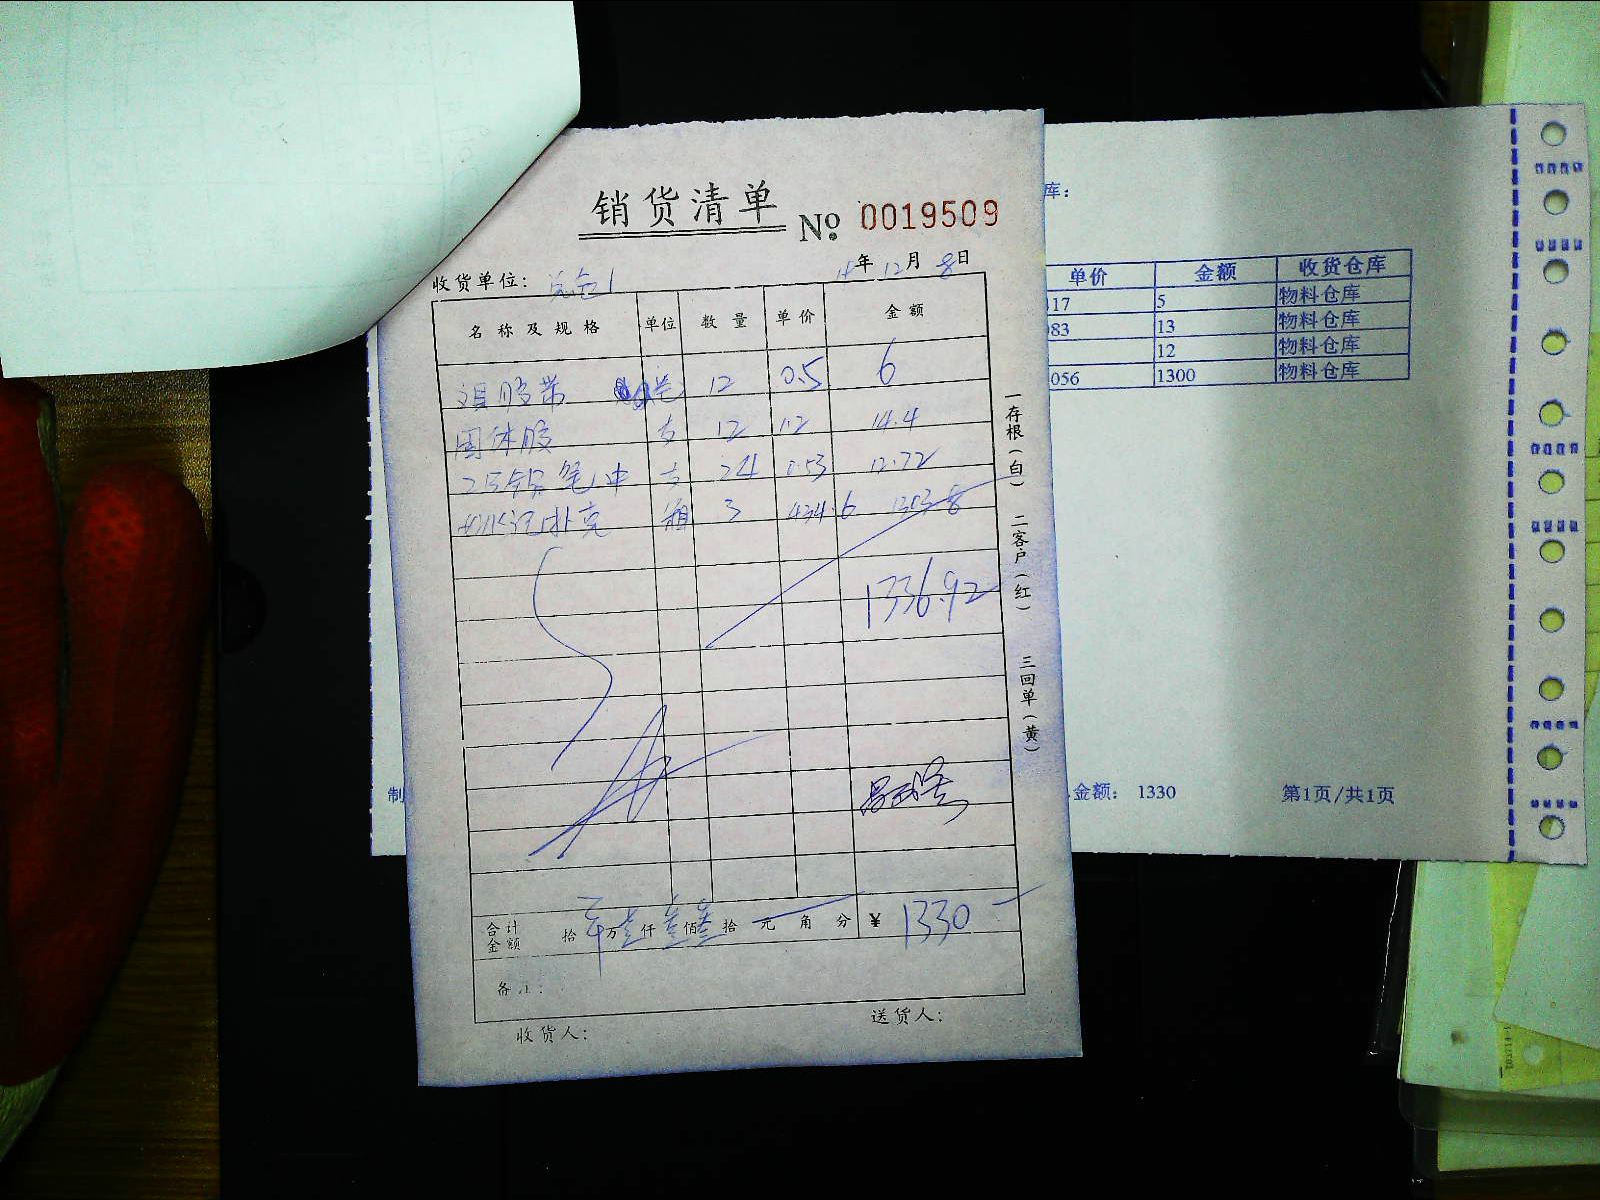 销货清单
No 0019509
收货单位：
14年12月8日
名称及规格 单位 数量 单价 金额
文具胶带 卷 12 0.5 6
固体胶 支 12 1.2 14.4
支 24 0.53 12.72
扑克 箱 3 434.6 1303.8
1336.92
合计金额 拾 万壹仟叁佰叁拾 元 角 分 ¥ 1330
备注：
收货人：
送货人：
一存根（白） 二客户（红） 三回单（黄）
库：
单价 金额 收货仓库
17 5 物料仓库
83 13 物料仓库
12 物料仓库
056 1300 物料仓库
制
金额： 1330
第1页/共1页